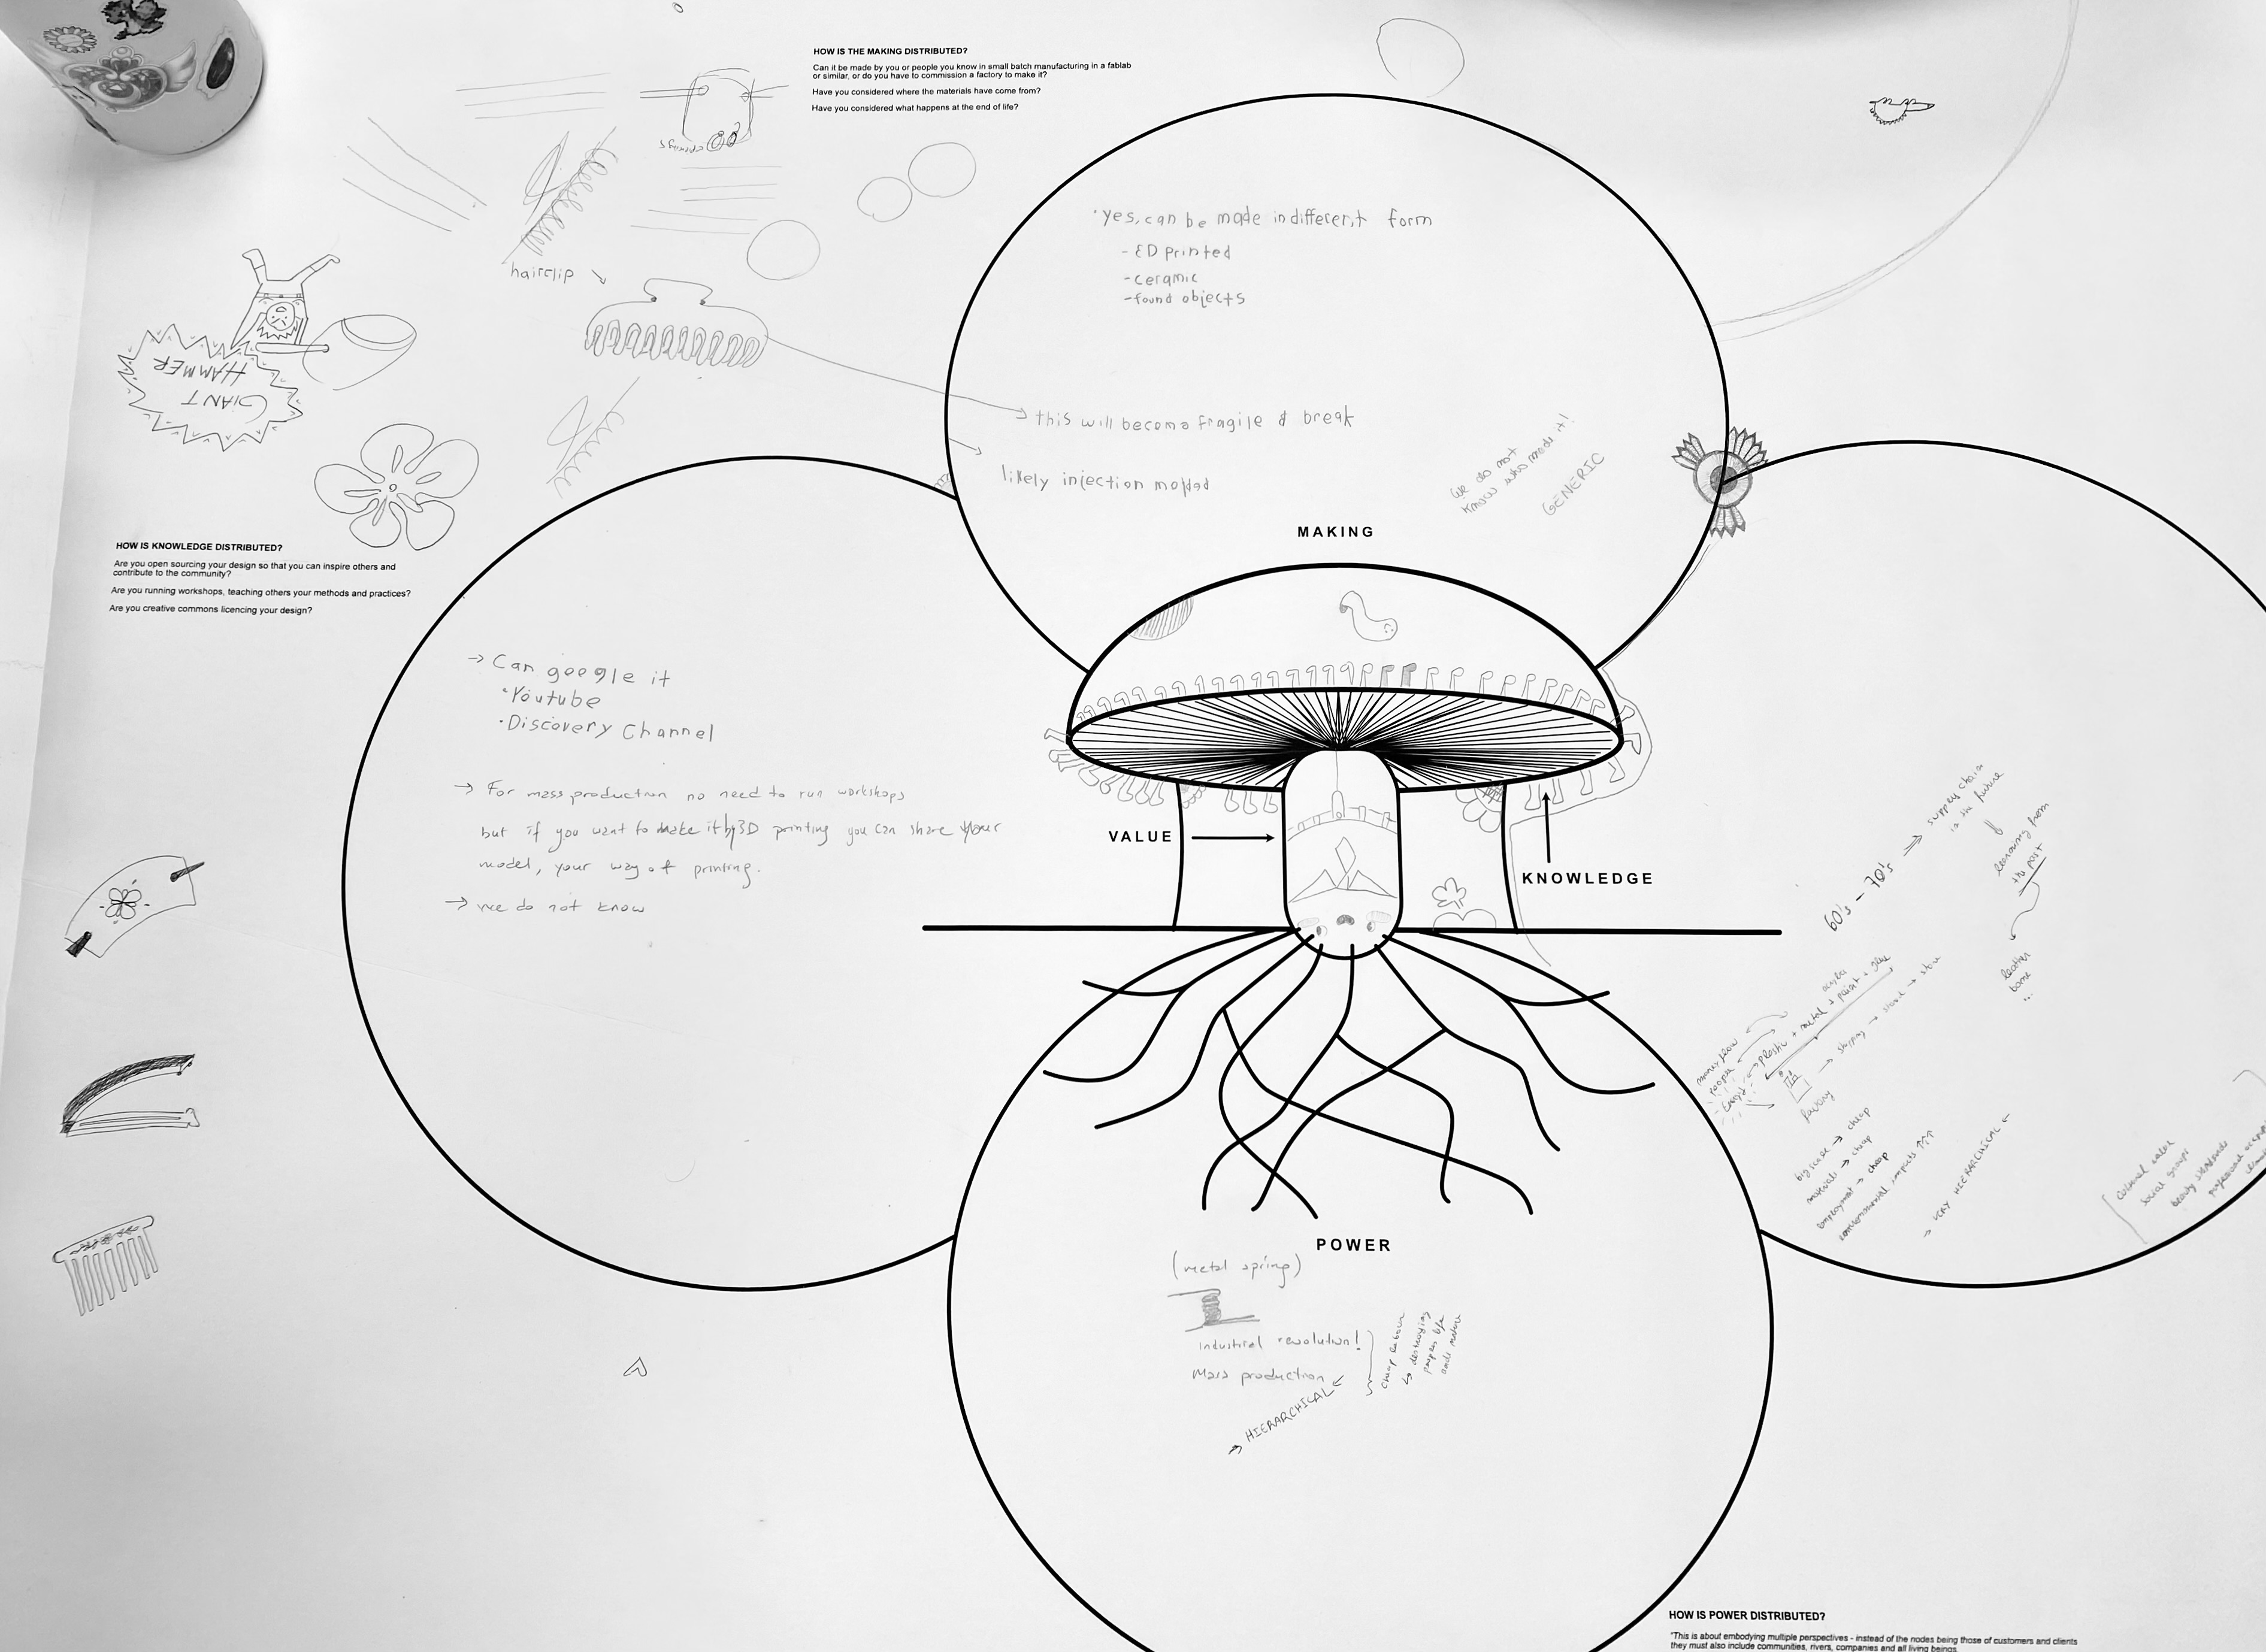 HOW IS THE MAKING DISTRIBUTED?
Can it be made by you or people you know in small batch manufacturing in a fablab
or similar, or do you have to commission a factory to make it?
Have you considered where the materials have come from?
Have you considered what happens at the end of life?
springs
hairclip
GIANT
HAMMER
• yes, can be made in different form
- 3D printed
- ceramic
- found objects
→ this will become fragile & break
likely injection molded
We do not
know who made it!
GENERIC
MAKING
HOW IS KNOWLEDGE DISTRIBUTED?
Are you open sourcing your design so that you can inspire others and
contribute to the community?
Are you running workshops, teaching others your methods and practices?
Are you creative commons licencing your design?
→ Can google it
• Youtube
• Discovery Channel
→ For mass production no need to run workshops
but if you want to make it by 3D printing you can share your
model, your way of printing.
→ we do not know
VALUE
KNOWLEDGE
60's - 70's ⇒ supply chain
is the future
learning from
the past
leather
bone
...
money flow
people
energy
plastic + metal + paint + glue
factory
→ shipping → stand → store
big scale → cheap
materials → cheap
employment → cheap
environmental impacts ↑↑↑
→ VERY HIERARCHICAL ←
cultural value
social groups
beauty standards
POWER
(metal spring)
Industrial revolution!
Mass production
→ HIERARCHICAL ←
cheap labour
↳ destroying
peoples life
and nature
HOW IS POWER DISTRIBUTED?
"This is about embodying multiple perspectives - instead of the nodes being those of customers and clients
they must also include communities, rivers, companies and all living beings